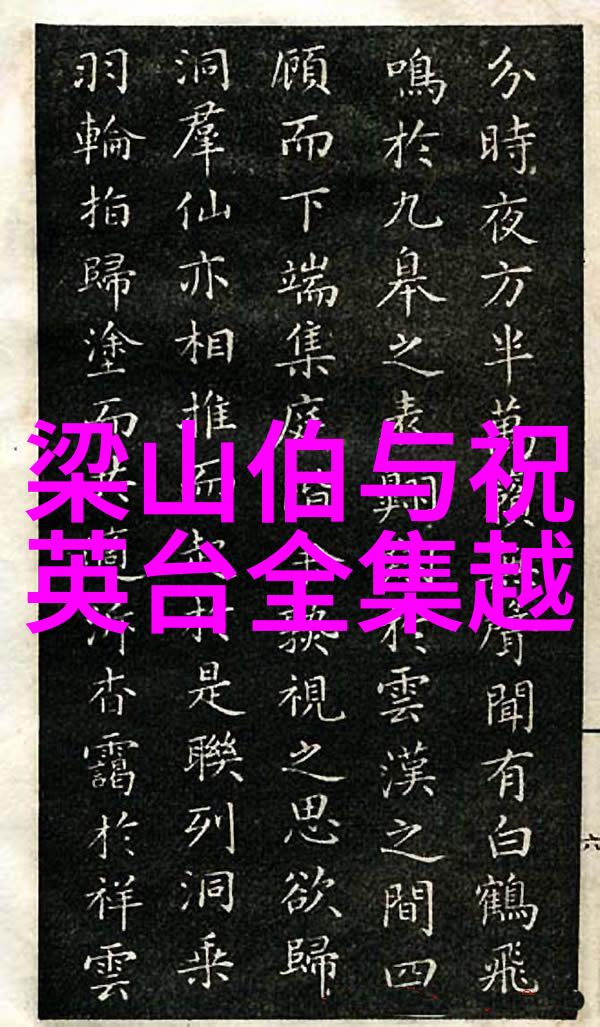 梁山伯与祝
英台全集越
分時夜方半萬聲聞有白鶴飛
鳴於九皋之表翔於雲漢之間四
顧而下端集庭視之思欲歸
洞羣仙亦相推而於是聯列洞乘
羽輪指歸塗而杳靄於祥雲
六